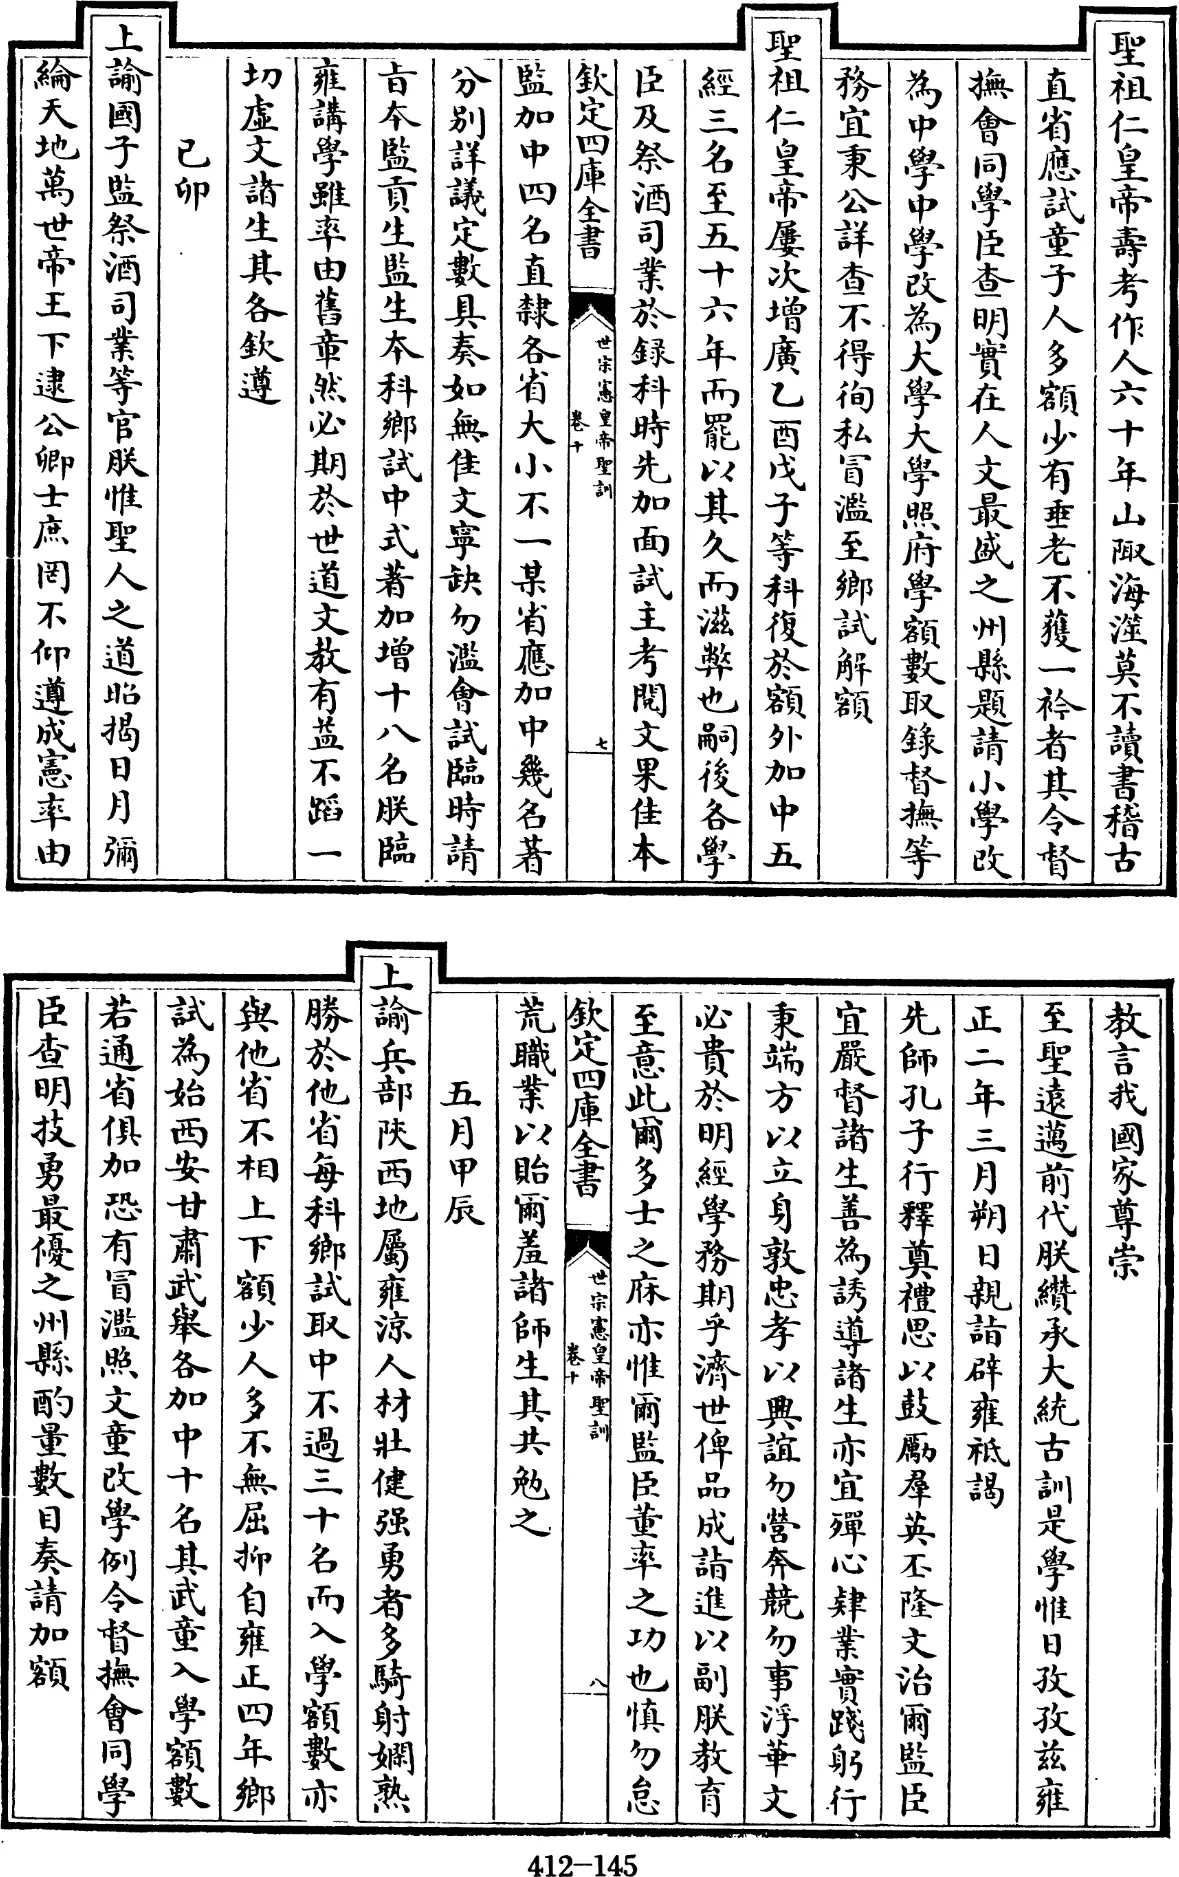 聖祖仁皇帝壽考作人六十年山陬海澨莫不讀書稽古
直省應試童子人多額少有垂老不獲一衿者其令督
撫會同學臣查明實在人文最盛之州縣題請小學改
為中學中學改為大學大學照府學額數取錄督撫等
務宜秉公詳查不得徇私冒濫至鄉試解額
聖祖仁皇帝屢次增廣乙酉戊子等科復於額外加中五
經三名至五十六年而罷以其久而滋弊也嗣後各學
臣及祭酒司業於録科時先加面試主考閱文果佳本
欽定四庫全書
世宗憲皇帝聖訓
卷十
七
監加中四名直隸各省大小不一某省應加中幾名著
分別詳議定數具奏如無佳文寧缺勿濫會試臨時請
旨本監貢生監生本科鄉試中式著加增十八名朕臨
雍講學雖率由舊章然必期於世道文教有益不蹈一
切虛文諸生其各欽遵
己卯
上諭國子監祭酒司業等官朕惟聖人之道昭揭日月彌
綸天地萬世帝王下逮公卿士庶罔不仰遵成憲率由
教言我國家尊崇
至聖遠邁前代朕纘承大統古訓是學惟日孜孜茲雍
正二年三月朔日親詣辟雍祗謁
先師孔子行釋奠禮思以鼓勵羣英丕隆文治爾監臣
宜嚴督諸生善為誘導諸生亦宜殫心肄業實踐躬行
秉端方以立身敦忠孝以興誼勿營奔競勿事浮華文
必貴於明經學務期乎濟世俾品成詣進以副朕教育
至意此爾多士之庥亦惟爾監臣董率之功也慎勿怠
欽定四庫全書
世宗憲皇帝聖訓
卷十
八
荒職業以貽爾羞諸師生其共勉之
五月甲辰
上諭兵部陝西地屬雍涼人材壯健强勇者多騎射嫻熟
勝於他省每科鄉試取中不過三十名而入學額數亦
與他省不相上下額少人多不無屈抑自雍正四年鄉
試為始西安甘肅武舉各加中十名其武童入學額數
若通省俱加恐有冒濫照文童改學例令督撫會同學
臣查明技勇最優之州縣酌量數目奏請加額
412-145